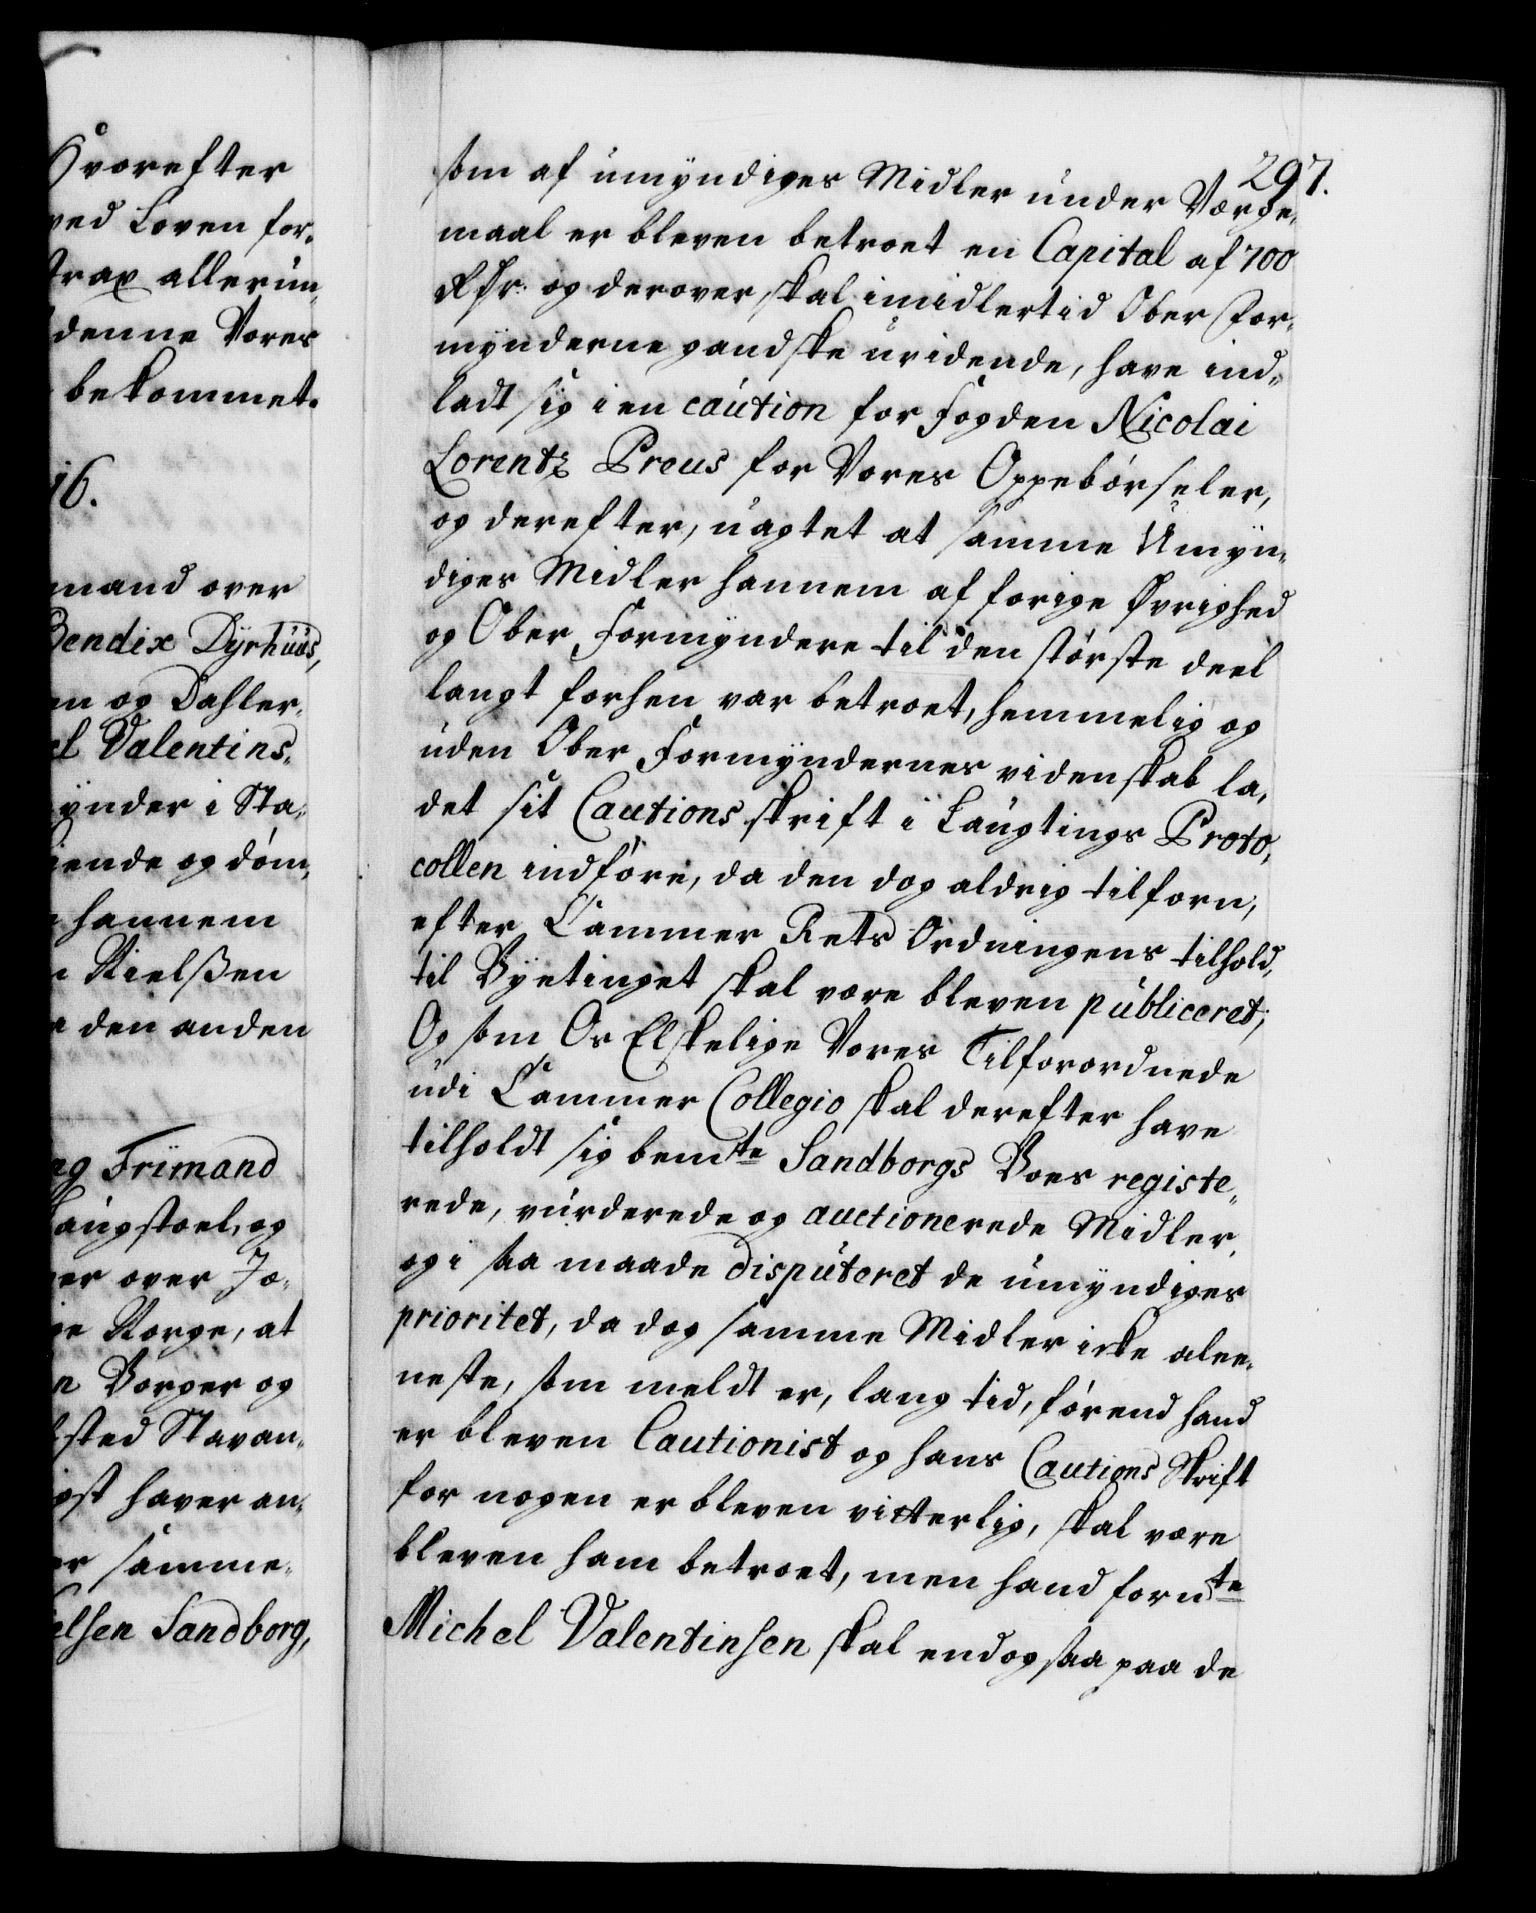 Hvorefter
ved Loven for¬
strax allerun¬
denne Vores
bekommet.
16.
mand over
Bendix Dÿrhuus,
en og Dahler¬
el Valentins¬
ynder i Sta¬
kiende og döm¬
hannem
Nielsßen
den anden
ng Frimand
Laugstoel, og
er over Jo¬
ge Norge, at
n Borger og
sted Stavan¬
gst haver an¬
er samme¬
elsen Sandborg,
297.
som af umyndiges Midler under Værge¬
maal er bleven betroet en Capital af 700
Rdr. og derover, skal imidlertid Ober For¬
mynderne gandske uvidende, have ind¬
ladt sig i en caution for Fogden Nicolai
Lorentz Preus for Vores Oppebörseler,
og derefter, uagtet at samme Umyn¬
diges Midler hannem af forige Øvrighed
og Ober Formyndere til den störste deel
langt forhen var betroet, hemmelig og
uden Ober Formyndernes videnskab la¬
det sit Cautions skrift i Laugtings Proto¬
collen indföre, da den dog aldrig tilforn,
efter Cammer Rets Ordningens tilhold,
til Byetinget skal være bleven publiceret;
Og som Os Elskelige Vores Tilforordnede
udi Cammer Collegio skal derefter have
tilholdt sig bemte Sandborgs Boes registe¬
rede, vurderede og auctionerede Midler,
og i saa maade disputeret de umyndiges
prioritet, da dog samme Midler icke alee¬
neste, som meldt er, lang tid, förend hand
er bleven Cautionist og hans Cautions Skrift
for nogen er bleven vitterlig, skal være
bleven ham betroet, men hand fornte
Michel Valentinsen skal endog saa paa de